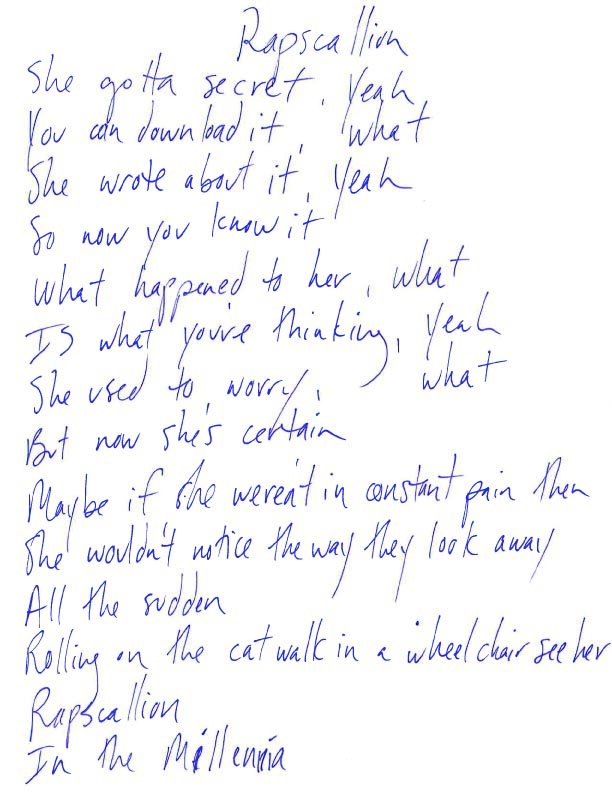 Rapscallion
She gotta secret, Yeah
You can download it, what
She wrote about it, Yeah
So now you know it
What happened to her, what
Is what you're thinking, Yeah
She used to worry, what
But now she's certain
Maybe if she weren't in constant pain then
She wouldn't notice the way they look away
All the sudden
Rolling on the catwalk in a wheelchair see her
Rapscallion
In the Millennia